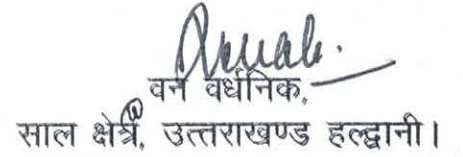 वन वर्धनिक,
साल क्षेत्र, उत्तराखण्ड हल्द्वानी।